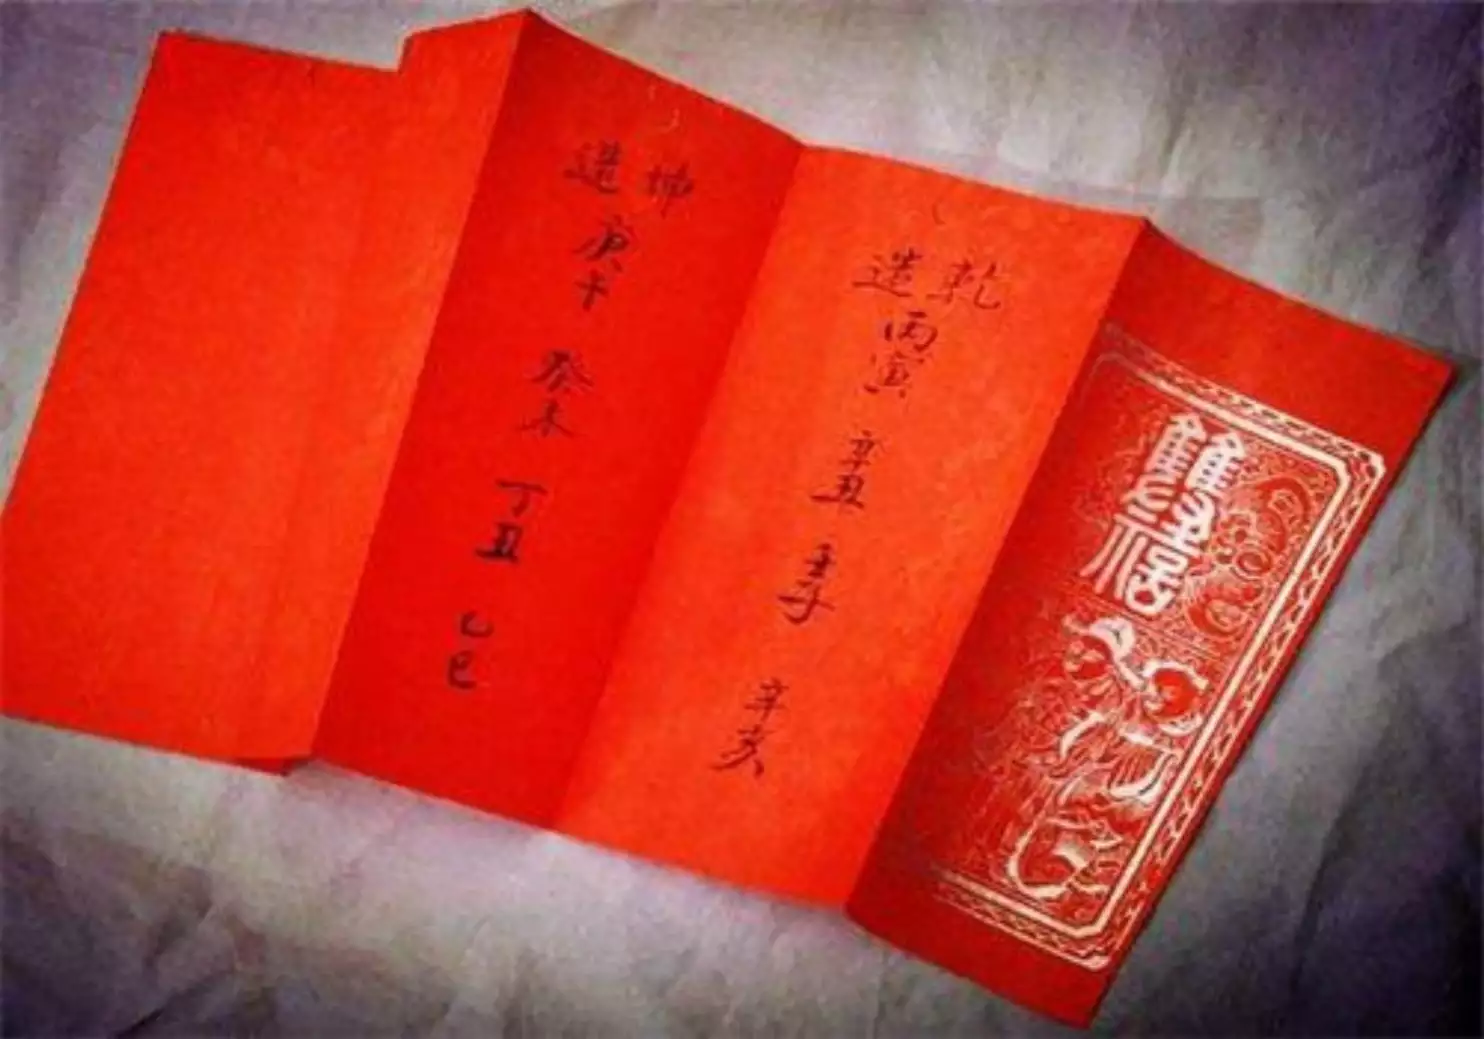 乾造 丙寅 辛丑 壬子 辛亥
坤造 庚午 癸未 丁丑 乙巳